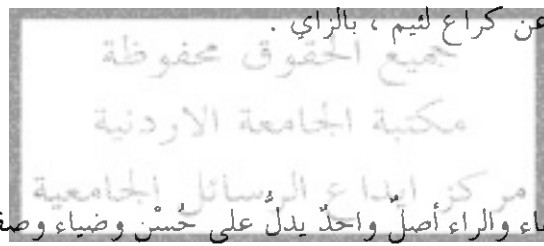 عن كراع لئيم ، بالزاي .
جميع الحقوق محفوظة
مكتبة الجامعة الاردنية
مركز ايداع الرسائل الجامعية
والراء أصلٌ واحدٌ يدلُّ على حُسْن وضياء